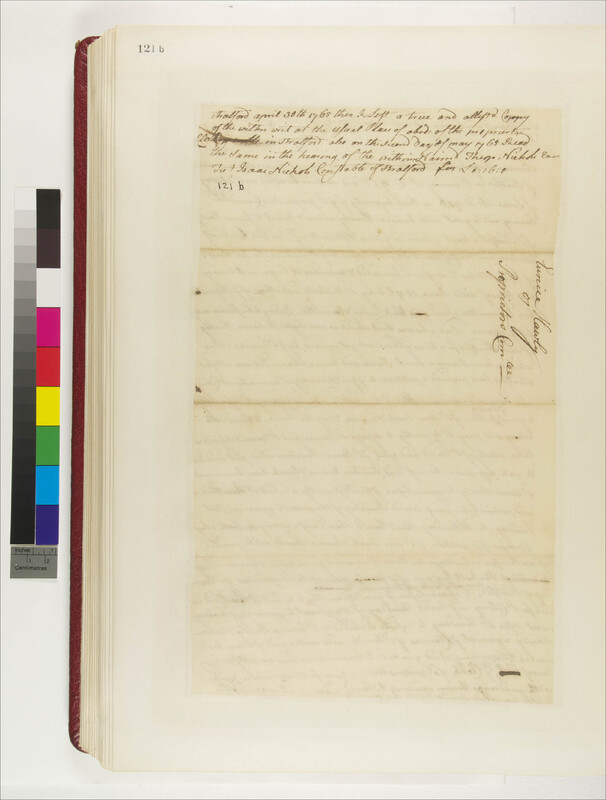 121 b
Stratford april 30th 1768 then I Left a true and attested Coppy
of the within writ at the usual Place of abode of the proprietors
in Stratford also on the second Day of may 1768 I Read
the same in the hearing of the within Named Nichols
Test Isaac Nichols Constable of Stratford fees
121 b
Eunice Hawly
Proprietors Com tee
Inches 1
1 2
Centimetres